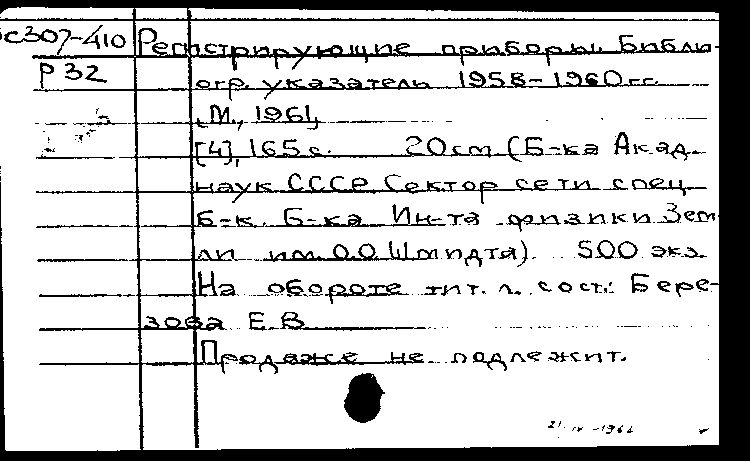 с307-410 Регистрирующие приборы. Библи-
Р 32 огр. указатель 1958-1960 гг.
М., 1961,
[4], 165 с. 20 см (Б-ка Акад.
наук СССР Сектор сети спец.
Б-к. Б-ка Ин-та физики Зем-
ли им. О.О Шмидта). 500 экз.
На обороте тит. л. сост.: Бере-
зова Е.В
Продаже не подлежит.